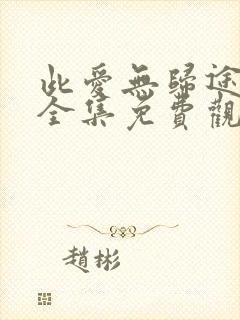 此愛無歸途
全集免費觀
趙彬